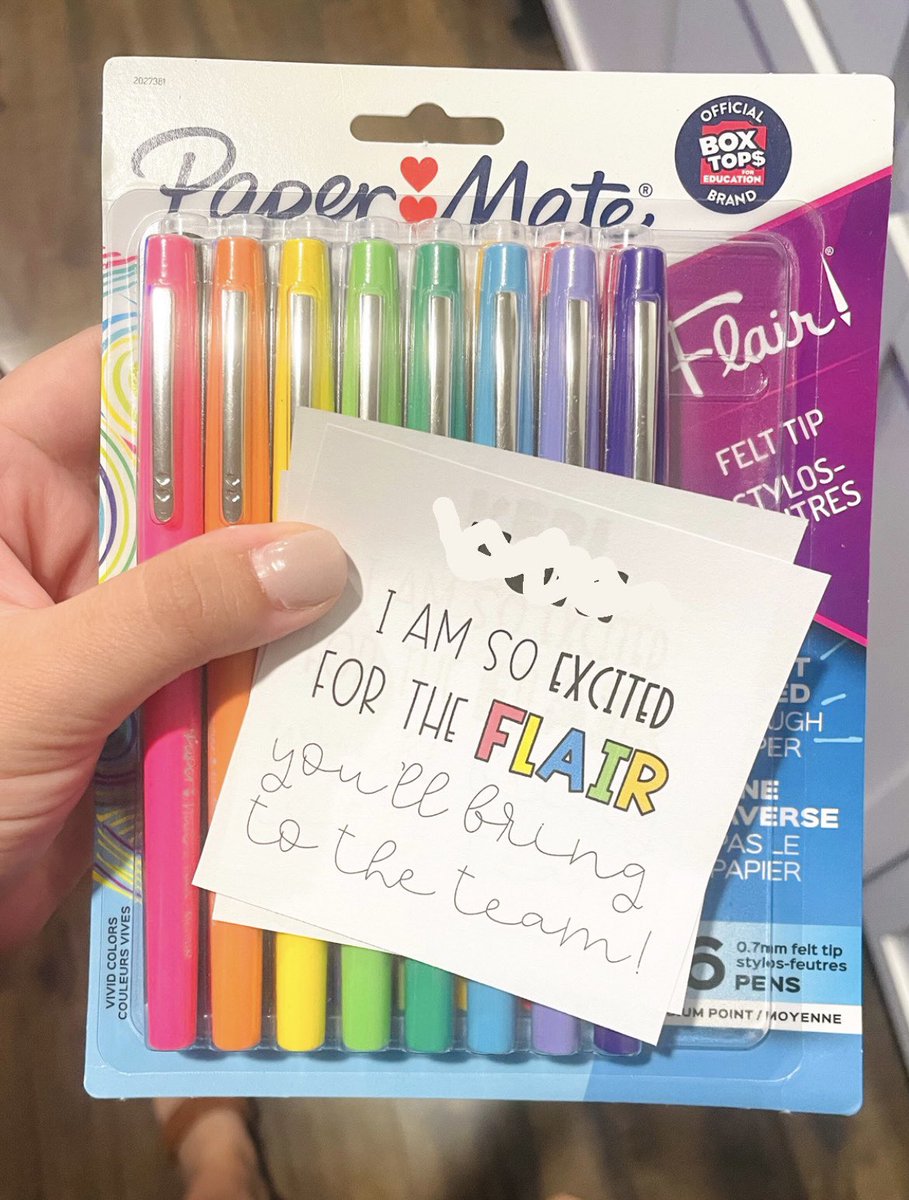 2027381
Paper Mate®
OFFICIAL
BOX
TOP$
FOR
EDUCATION
BRAND
Flair!®
FELT TIP
STYLOS-
I AM SO EXCITED
FOR THE FLAIR
you'll bring
to the team!
PAS LE
PAPIER
VIVID COLORS
COULEURS VIVES
6
0.7mm felt tip
stylos-feutres
PENS
/ MOYENNE